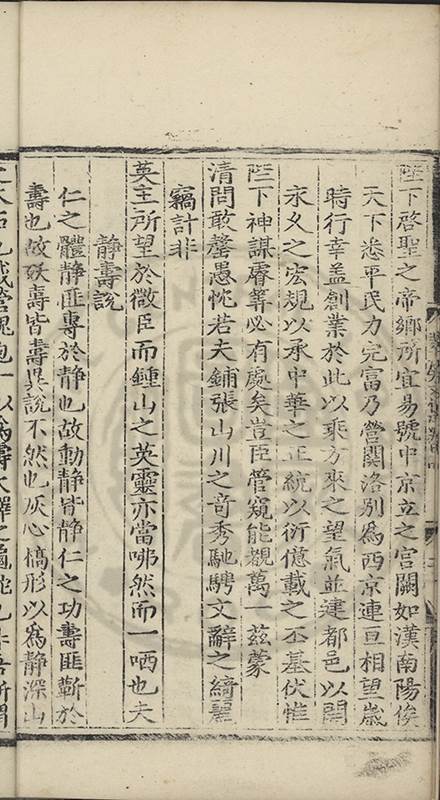 陛下啓聖之帝鄉所宜易號中京立之宮闕如漢南陽俟
天下悉平民力完富乃營關洛別為西京連亘相望歲
時行幸盖創業於此以乘方來之望氣並建都邑以開
永乂之宏規以承中華之正統以衍億載之丕基伏惟
陛下神謀睿筭必有處矣豈臣管窺能覩萬一兹蒙
清問敢罄愚忱若夫鋪張山川之竒秀馳騁文辭之綺麗
竊計非
英主所望於微臣而鍾山之英靈亦當哪然而一哂也夫
静壽說
仁之體静匪專於静也故動静皆静仁之功壽匪蘄於
壽也故殀壽皆壽異說不然也灰心槁形以為静深山